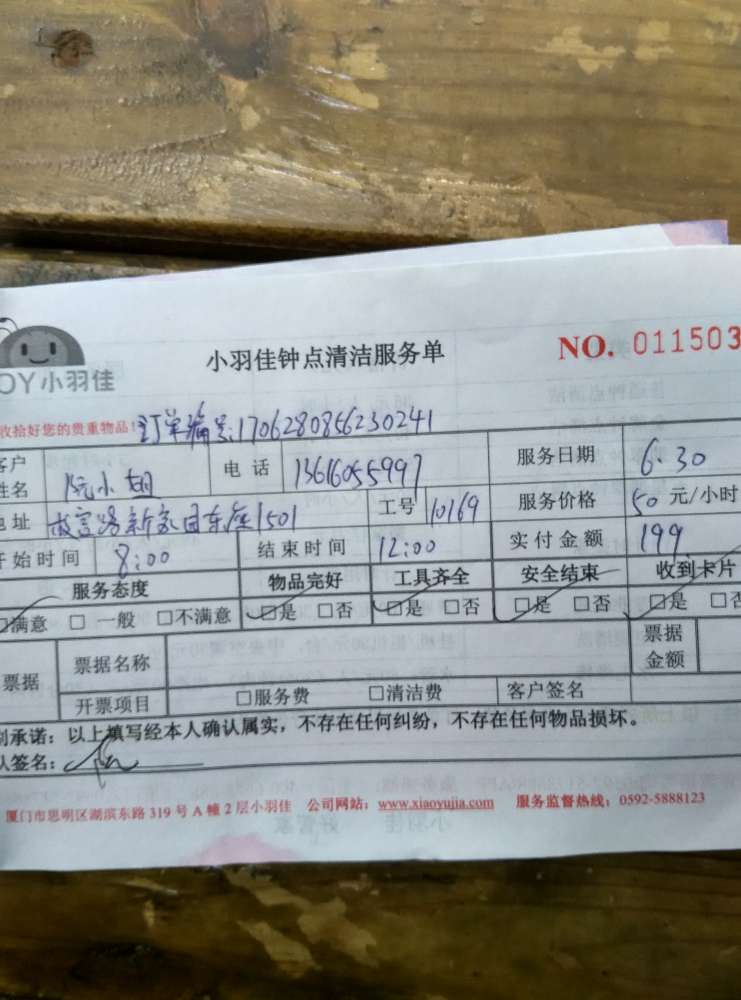 小羽佳钟点清洁服务单
NO. 011503
OY小羽佳
收拾好您的贵重物品! 订单编号:1706280856230241
客户姓名 阮小姐 电话 13616055997 服务日期 6.30
地址 故宫路新家园东座1501 工号 10169 服务价格 50 元/小时
开始时间 8:00 结束时间 12:00 实付金额 199
服务态度 物品完好 工具齐全 安全结束 收到卡片
□满意 □一般 □不满意 □是 □否 □是 □否 □是 □否 □是 □否
票据 票据名称 票据金额
开票项目 □服务费 □清洁费 客户签名
别承诺:以上填写经本人确认属实,不存在任何纠纷,不存在任何物品损坏。
人签名:
厦门市思明区湖滨东路 319 号 A 幢 2 层小羽佳 公司网站:www.xiaoyujia.com 服务监督热线:0592-5888123